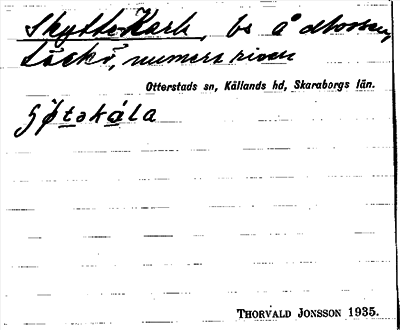 Skytte Karls, be å
Läckö, numera riven
Otterstads sn, Kållands hd, Skaraborgs län.
THORVALD JONSSON 1935.